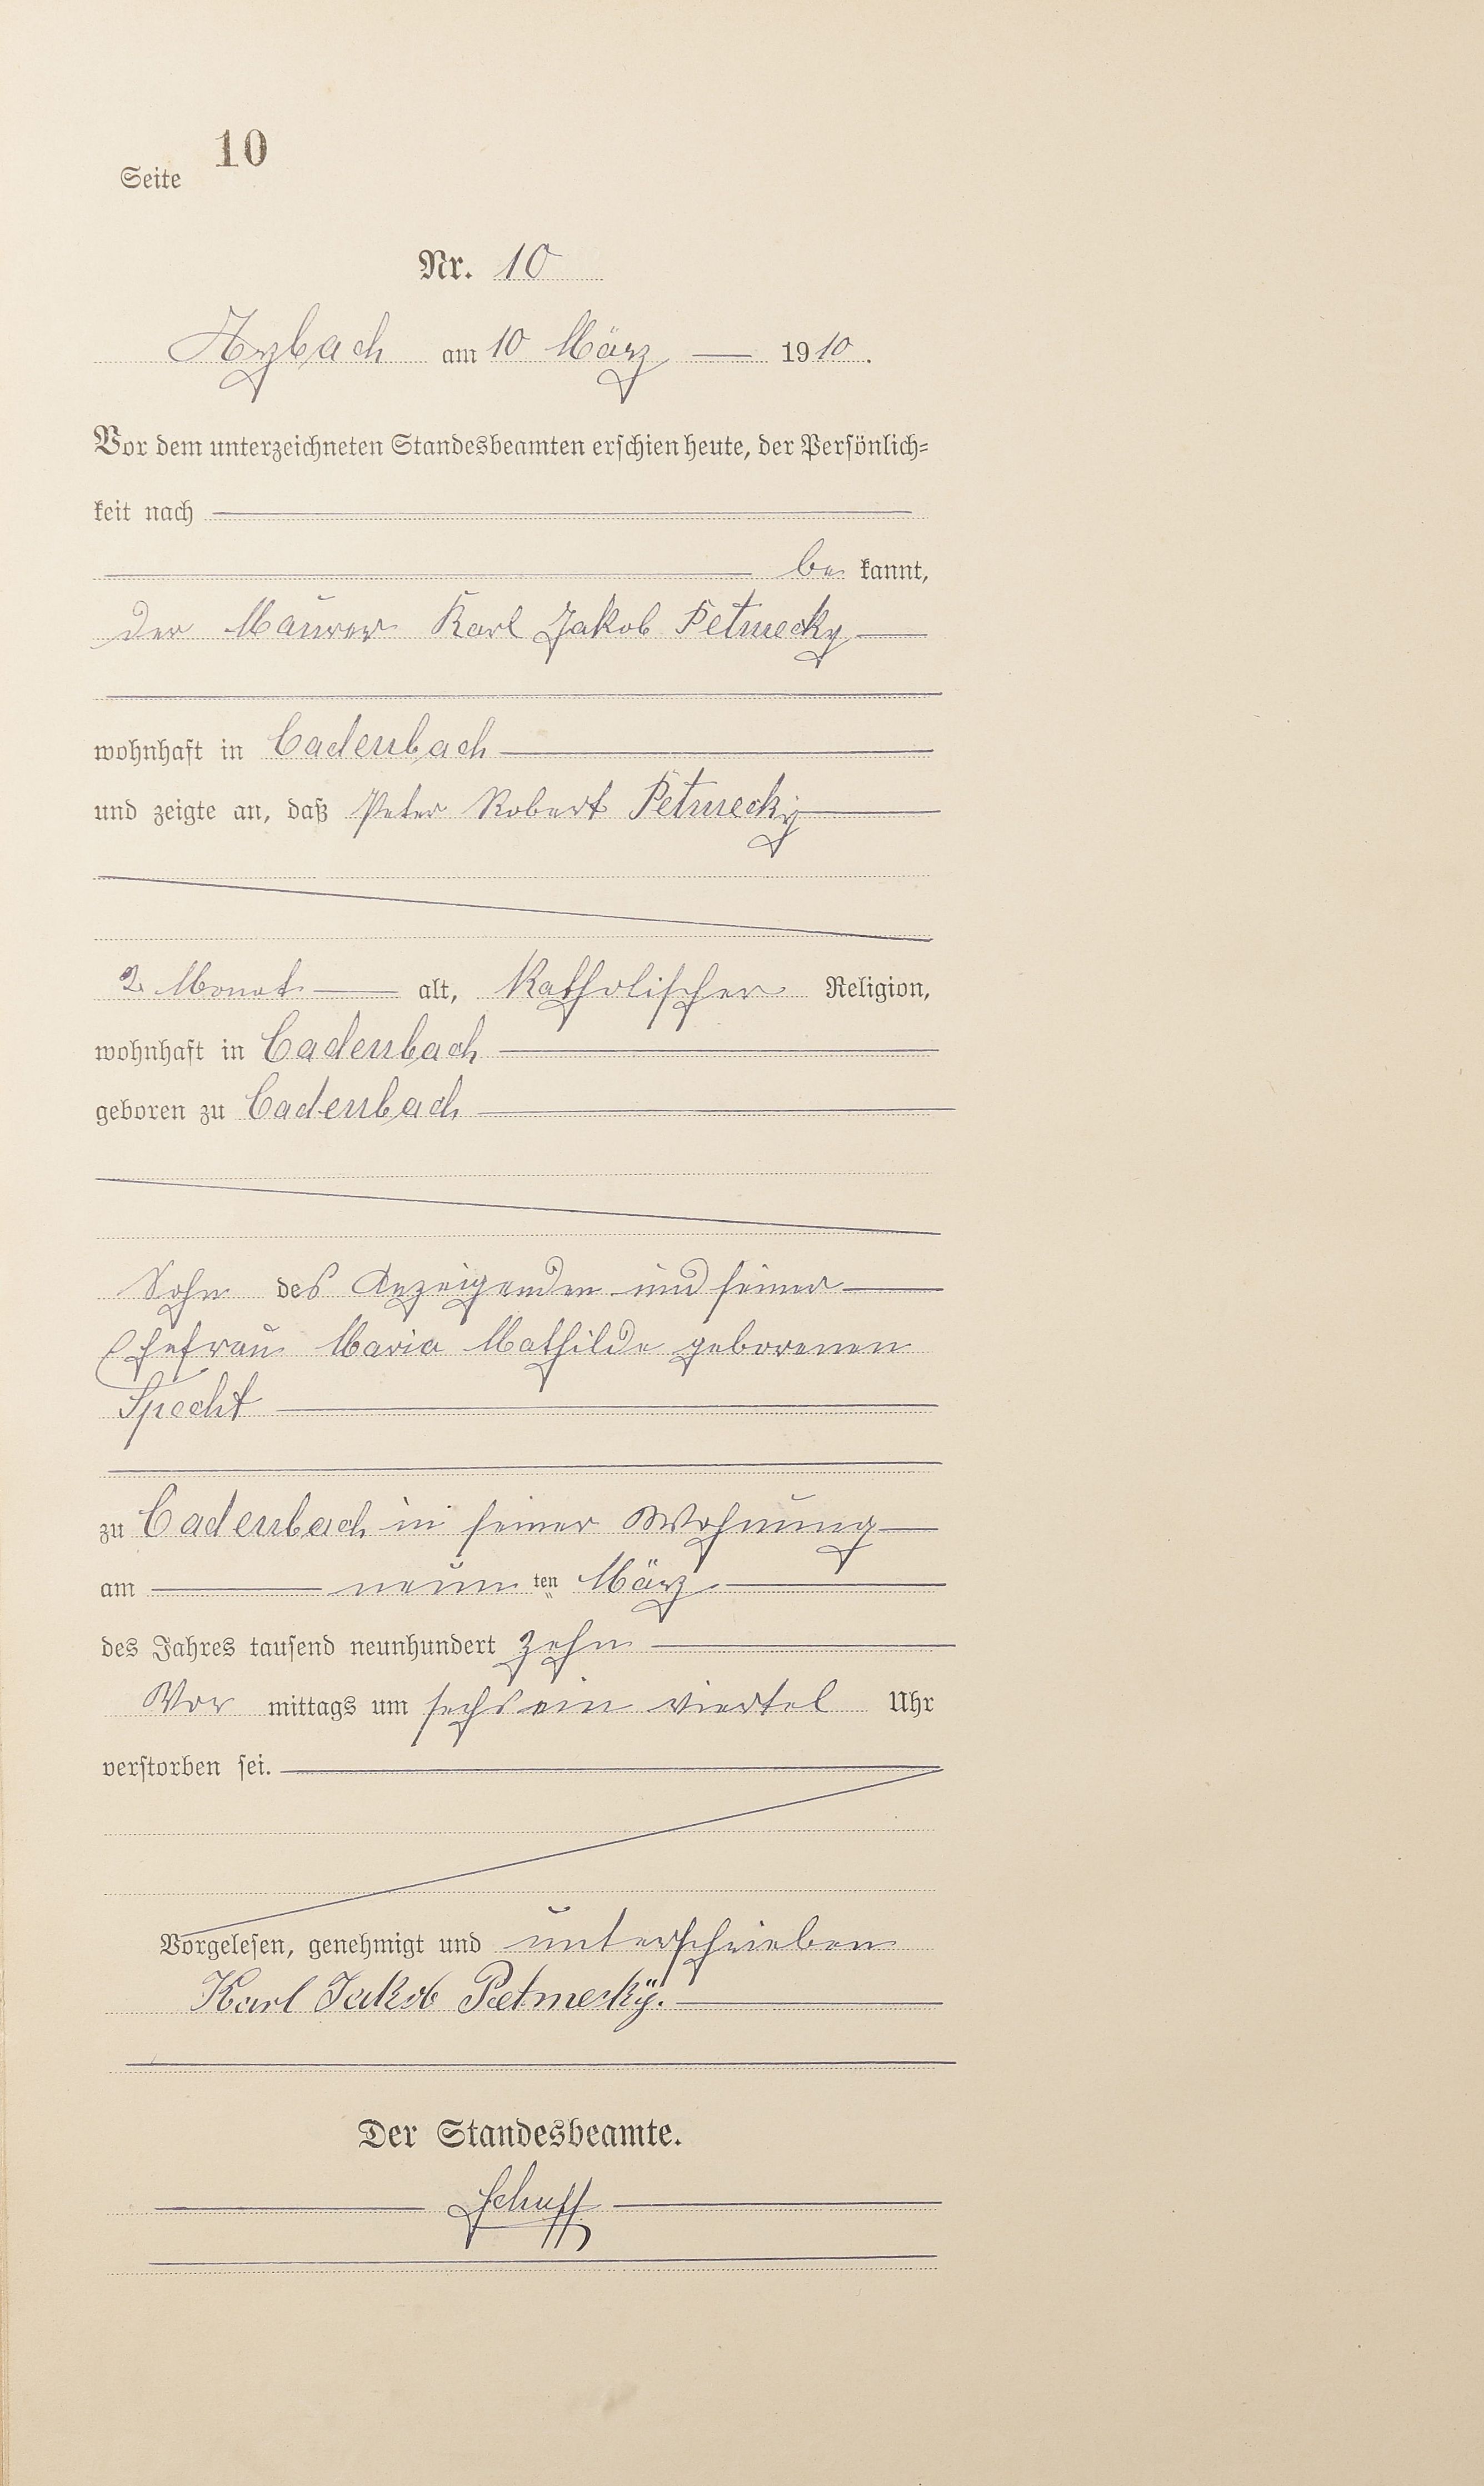 Seite 10
Nr. 10
Arzbach am 10 März 1910.
Vor dem unterzeichneten Standesbeamten erschien heute, der Persönlich-
keit nach
be kannt,
der Maurer Karl Jakob Petmecky
wohnhaft in Cadenbach
und zeigte an, daß Peter Robert Petmecky
2 Monat alt, Katholischer Religion,
wohnhaft in Cadenbach
geboren zu Cadenbach
Sohn des Anzeigenden und seiner
Ehefrau Maria Mathilde geborenen
Specht
zu Cadenbach in seiner Wohnung
am neun ten März
des Jahres tausend neunhundert zehn
Vor mittags um sechs ein viertel Uhr
verstorben sei.
Vorgelesen, genehmigt und unterschrieben
Karl Jakob Petmecky.
Der Standesbeamte.
Schuff